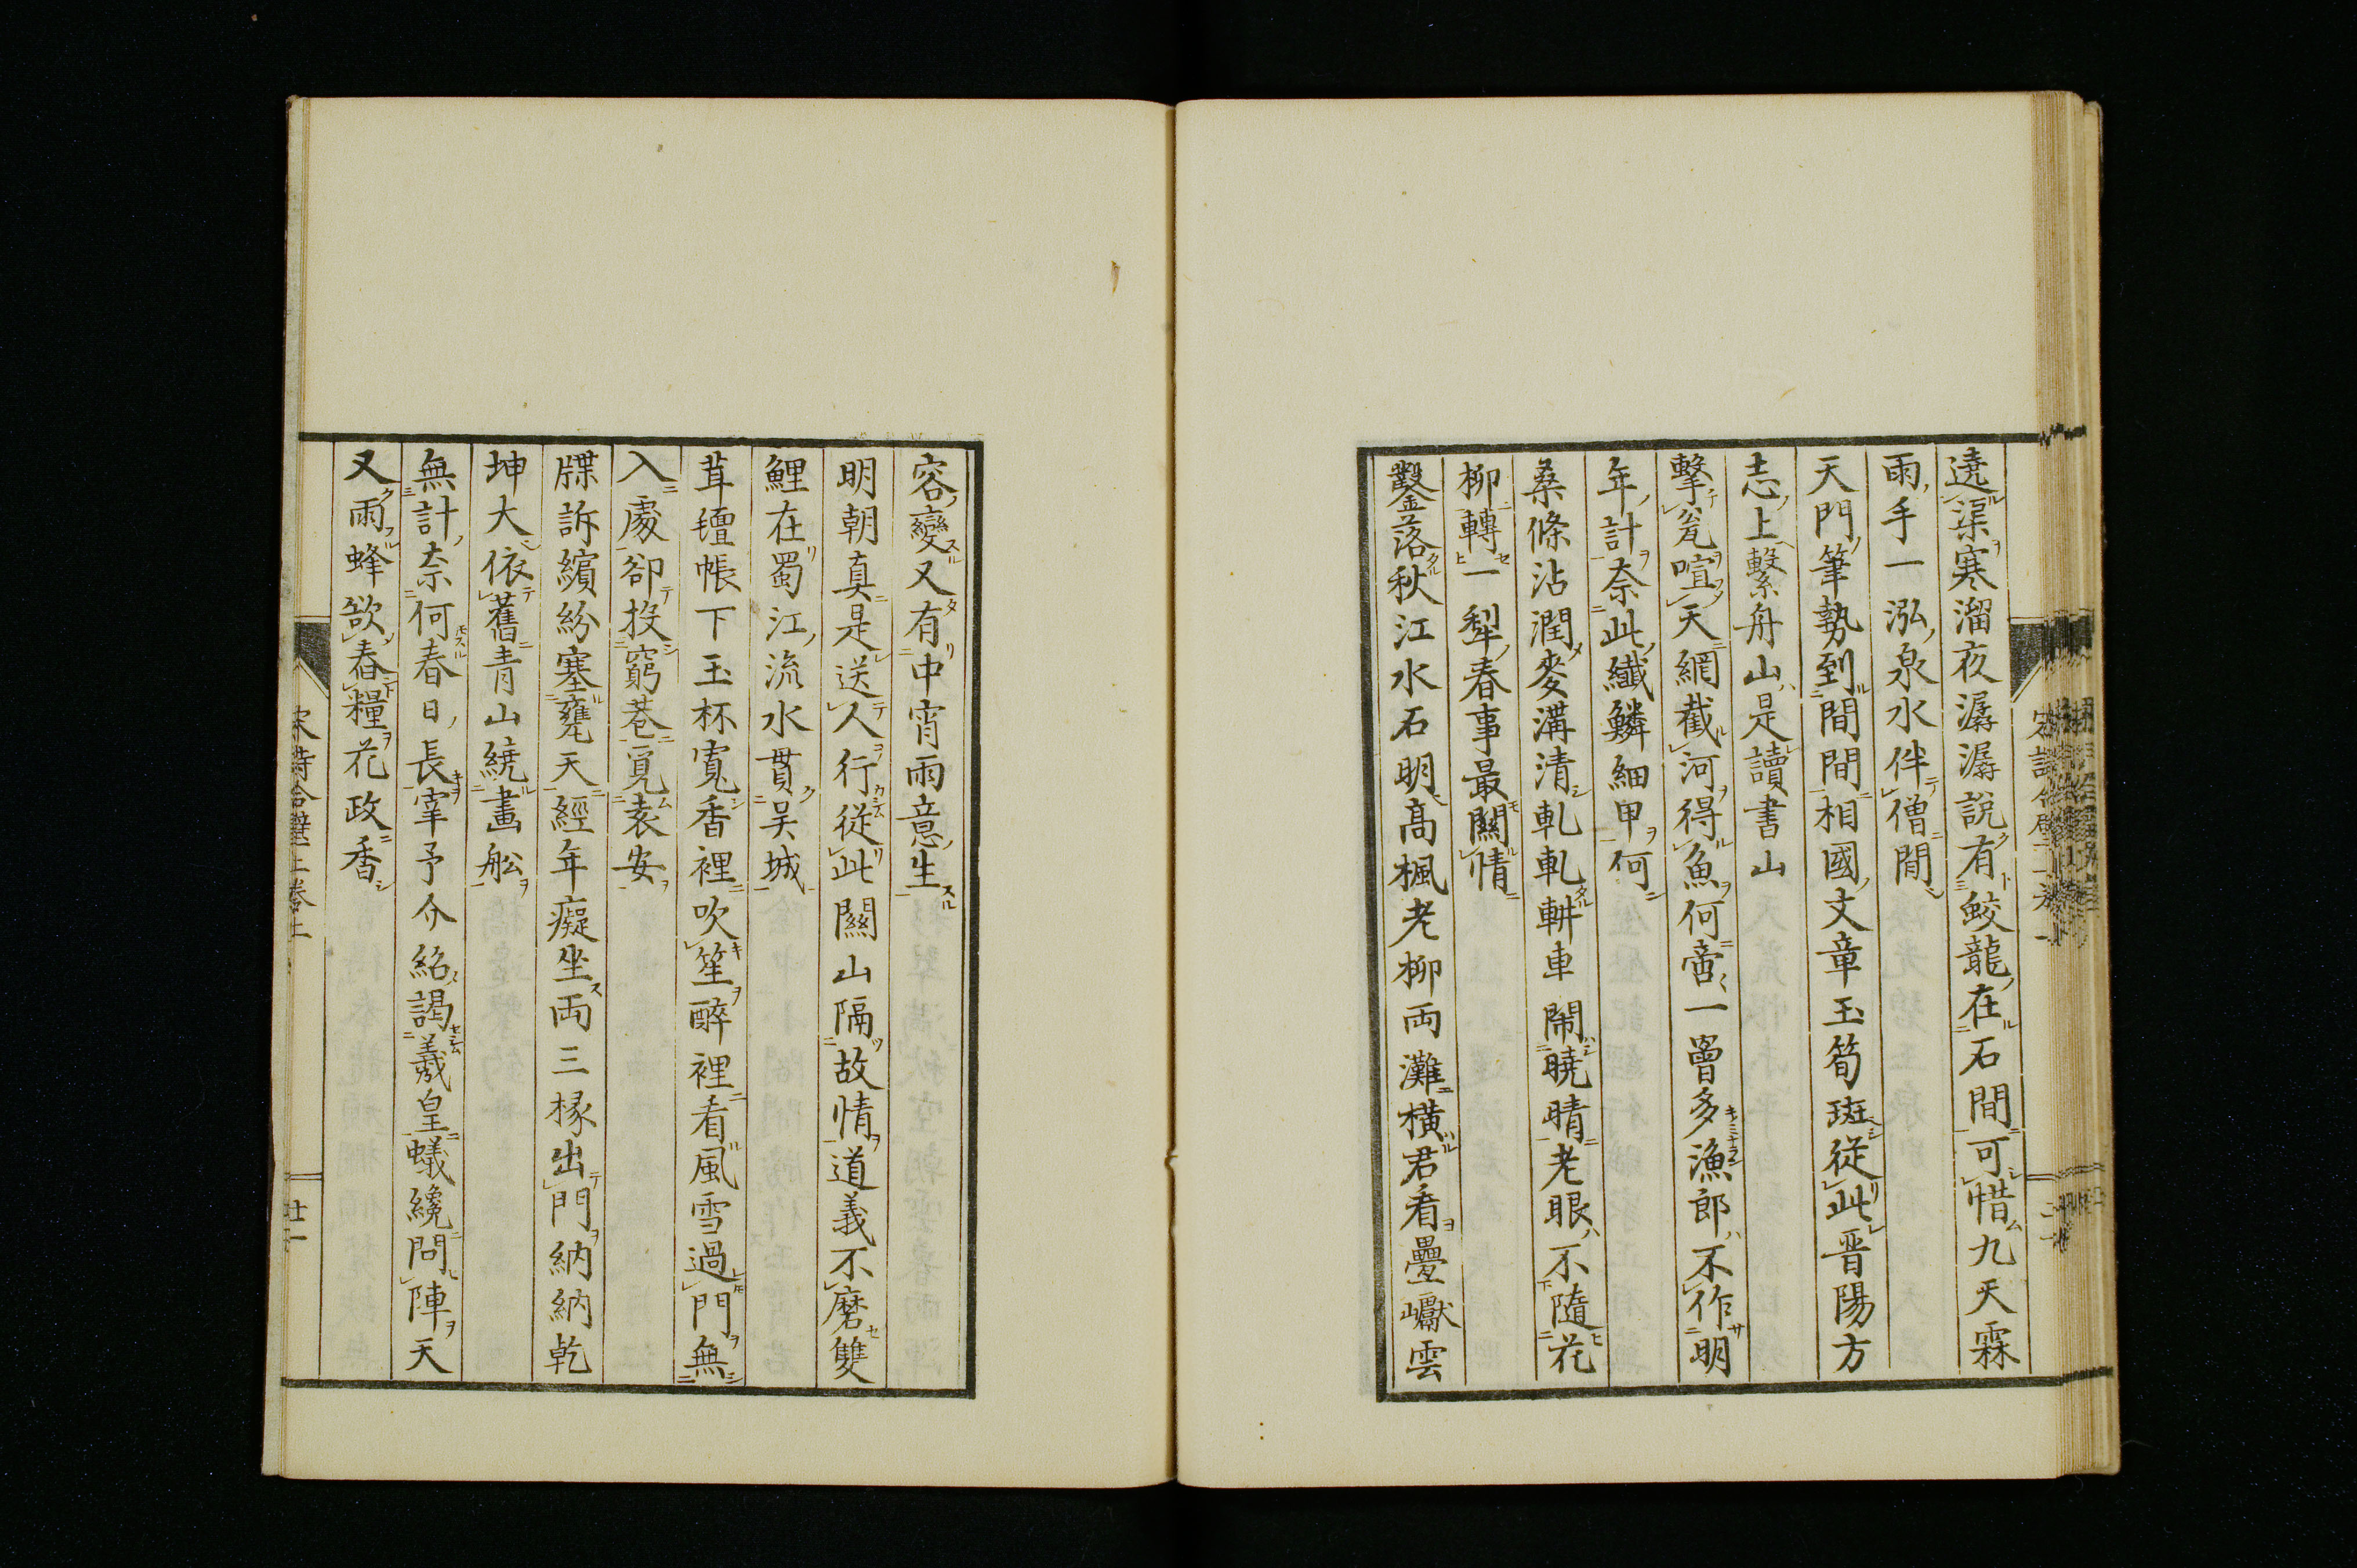 遶渠寒溜夜潺潺說有鮫龍在石間可惜九天霖
雨手一泓泉水伴僧閒
天門筆勢到間間相國文章玉筍斑從此晋陽方
志上繫舟山是讀書山
擊瓮喧天網截河得魚何啻一罾多漁郎不作明
年計奈此纖鱗細甲何
桑條沾潤麥溝清軋軋耕車鬧曉晴老眼不隨花
柳轉一犁春事最關情
鑿落秋江水石明高楓老柳両灘橫君看疊巘雲
容變又有中宵雨意生
明朝真是送人行從此關山隔故情道義不磨雙
鯉在蜀江流水貫吴城
茸氊帳下玉杯寬香裡吹笙醉裡看風雪過門無
入處卻投窮巷覓袁安
牒訴繽紛塞甕天經年癡坐両三椽出門納納乾
坤大依舊青山繞畫舩
無計奈何春日長宰予介紹謁羲皇蟻纔問陣天
又雨蜂欲舂糧花政香